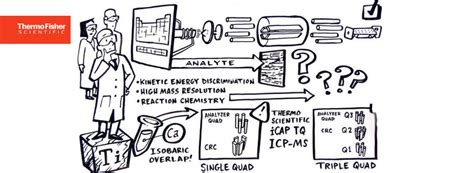 ThermoFisher
SCIENTIFIC
ANALYTE
• KINETIC ENERGY DISCRIMINATION
• HIGH MASS RESOLUTION
• REACTION CHEMISTRY
?
? ? ? ?
Ti
Ca
ISOBARIC
OVERLAP!
ANALYZER
QUAD
CRC
SINGLE QUAD
THERMO
SCIENTIFIC
iCAP TQ
ICP-MS
ANALYZER
QUAD
CRC
Q3
Q2
Q1
TRIPLE QUAD